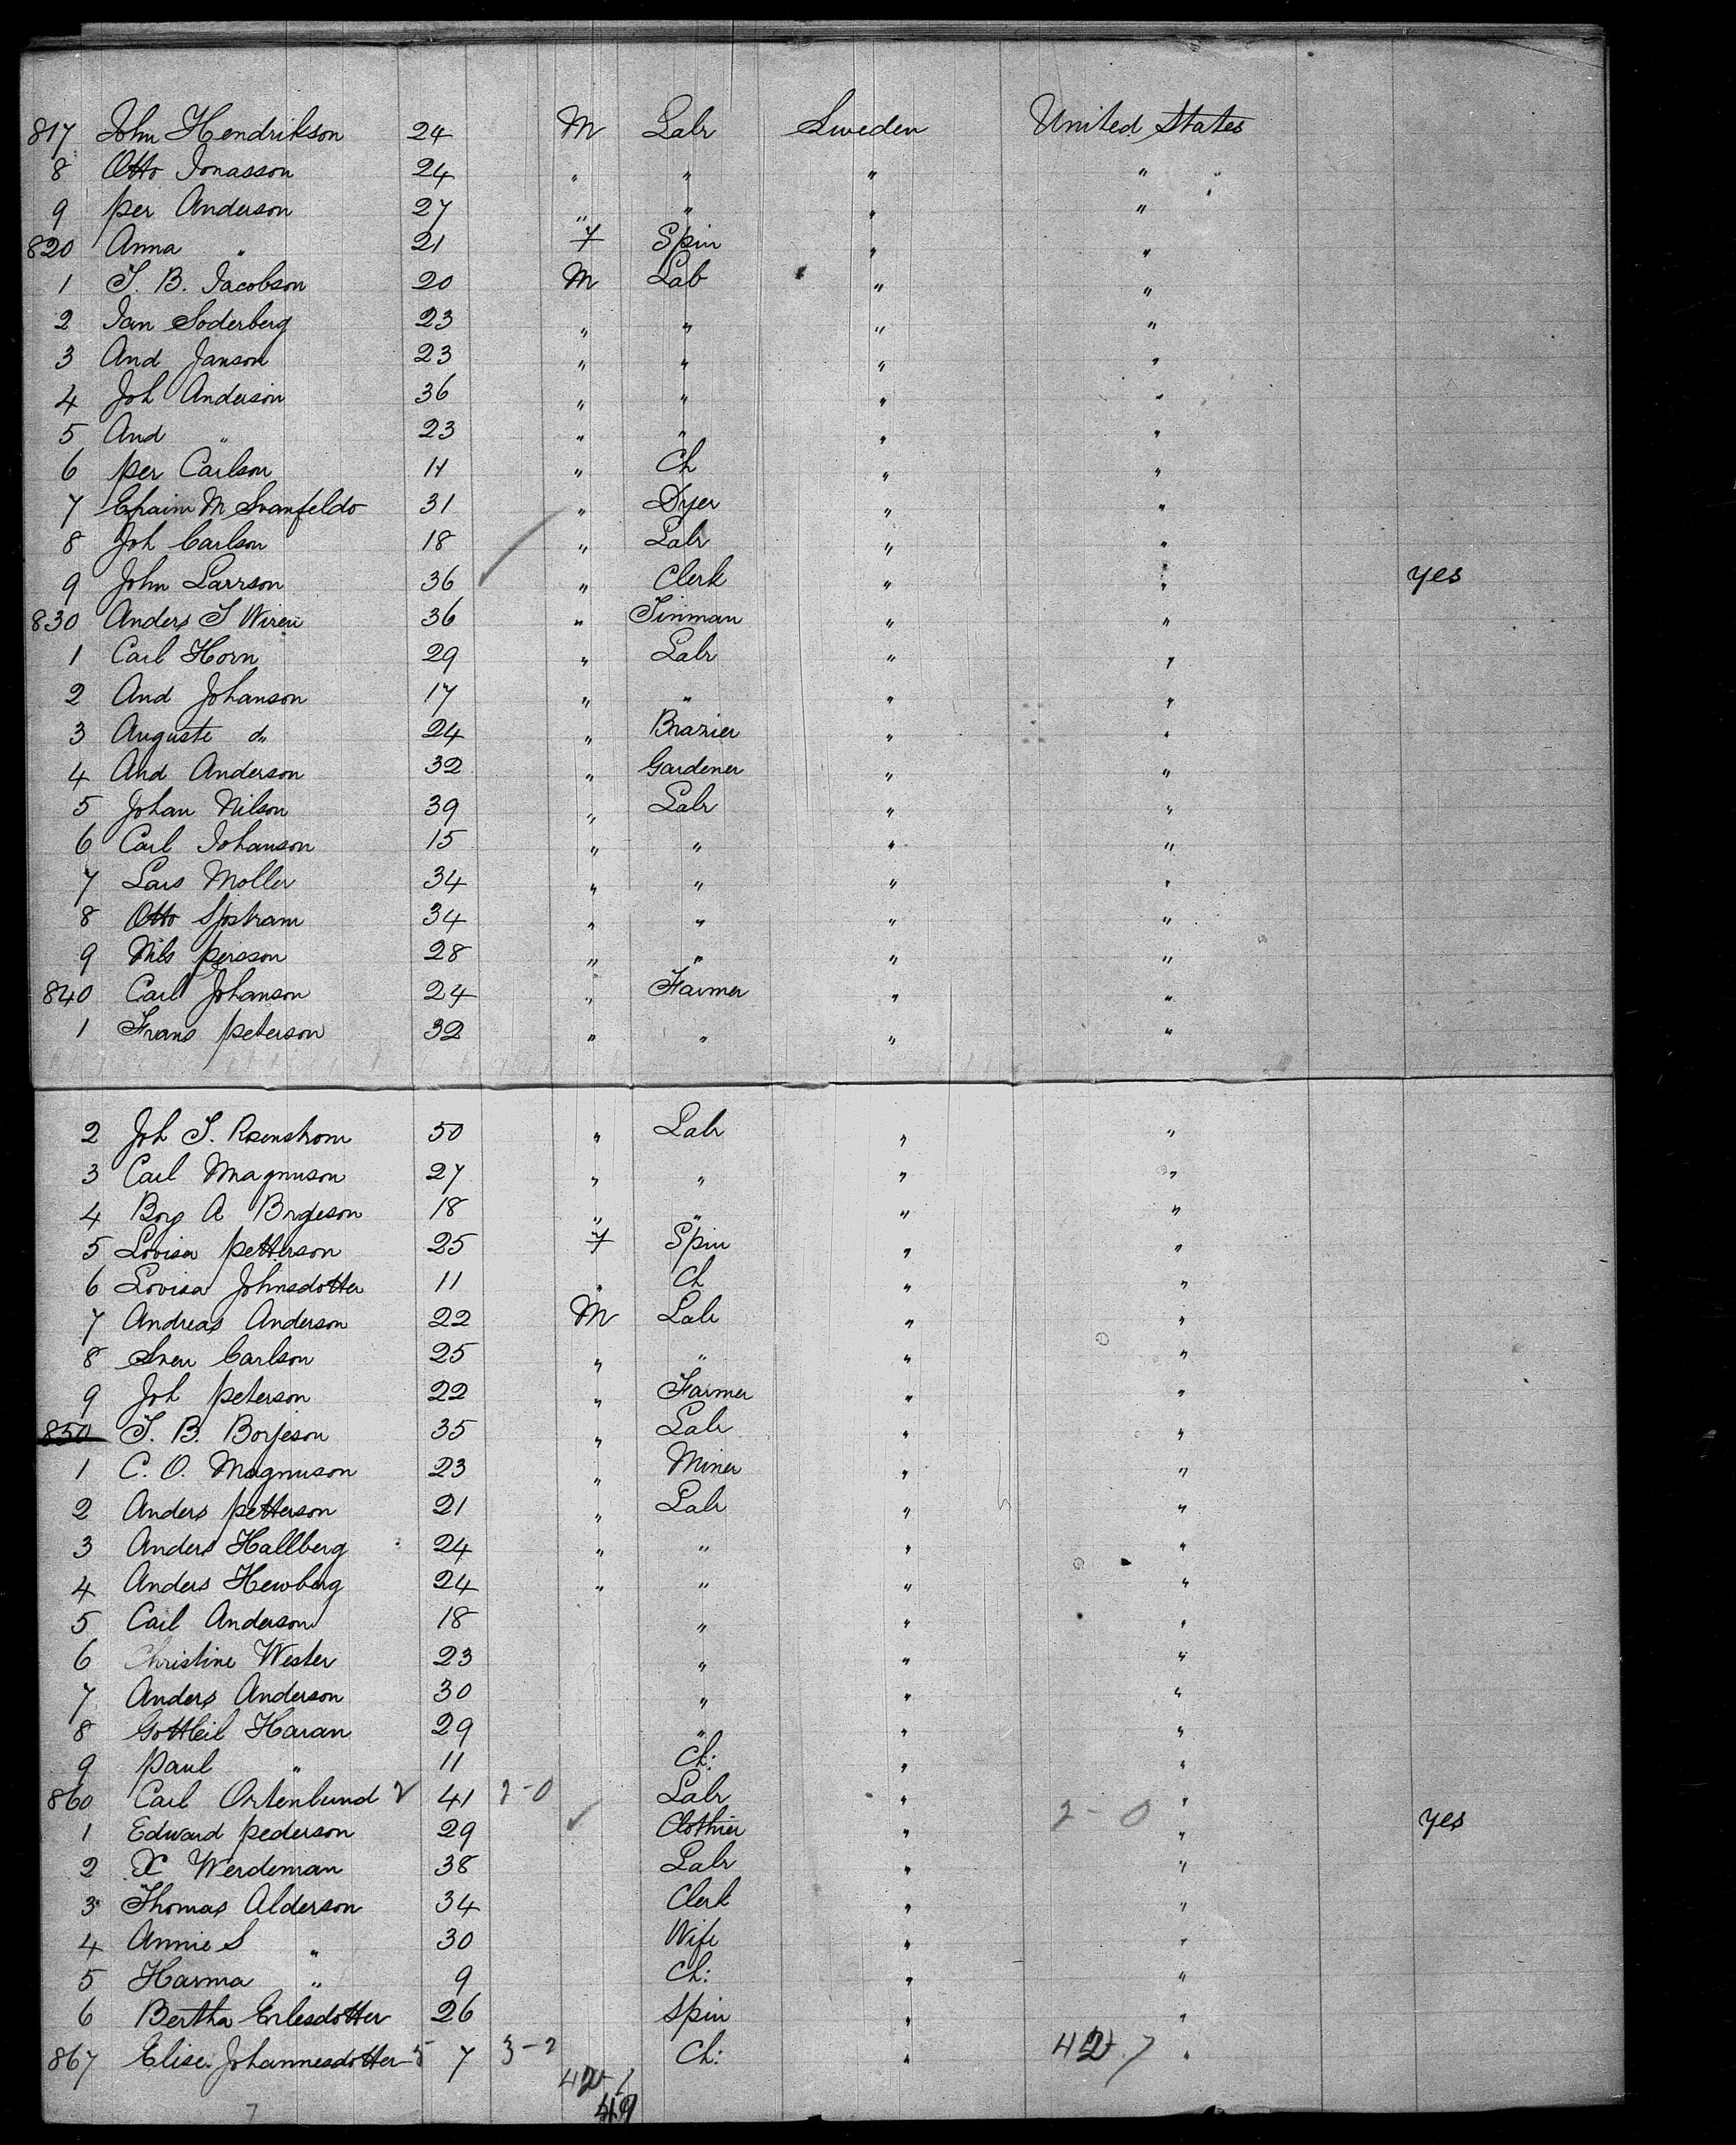 817 John Hendrikson 24 M Labr Sweden United States
8 Otto Jonasson 24 " " " "
9 per Anderson 27 " " " "
820 Anna " 21 F Spin " "
1 J. B. Jacobson 20 M Lab " "
2 Jan Soderberg 23 " " " "
3 And Janson 23 " " " "
4 Joh Anderson 36 " " " "
5 And " 23 " " " "
6 per Carlson 11 " Ch " "
7 Efraim M Svanfeldo 31 " Dyer " "
8 Joh Carlson 18 " Labr " "
9 John Larrson 36 " Clerk " " yes
830 Anders J Wiren 36 " Tinman " "
1 Carl Horn 29 " Labr " "
2 And Johanson 17 " " " "
3 Auguste do 24 " Brazier " "
4 And Anderson 32 " Gardener " "
5 Johan Nilson 39 " Labr " "
6 Carl Johanson 15 " " " "
7 Lars Moller 34 " " " "
8 Otto Sjostram 34 " " " "
9 Nils persson 28 " " " "
840 Carl Johanson 24 " Farmer " "
1 Frans peterson 32 " " " "
2 Joh J. Rosenstrom 50 " Labr " "
3 Carl Magnuson 27 " " " "
4 Borg A 18 " " " "
5 Lovisa petterson 25 F Spin " "
6 Lovisa Johnsdotter 11 " Ch " "
7 Andreas Anderson 22 M Labr " "
8 Sven Carlson 25 " " " "
9 Joh peterson 22 " Farmer " "
850 J. B. Borjeson 35 " Labr " "
1 C. O. Magnuson 23 " Miner " "
2 Anders petterson 21 " Labr " "
3 Anders Hallberg 24 " " " "
4 Anders Hewberg 24 " " " "
5 Carl Anderson 18 " " "
6 Christine Wester 23 " " "
7 Anders Anderson 30 " " "
8 Gottleil Haran 29 " " "
9 paul " 11 Ch: " "
860 Carl Ortenlund 2 41 2-0 Labr " "
1 Edward pederson 29 Clothier " 2-0 " yes
2 Werdeman 38 Labr " "
3 Thomas Alderson 34 Clerk " "
4 Annie S " 30 Wife " "
5 Harma " 9 Ch: " "
6 Bertha Erlesdotter 26 Spin " "
867 Elise Johannesdotter 5 7 3-2 Ch: " 42.7 "
42-7
49
7